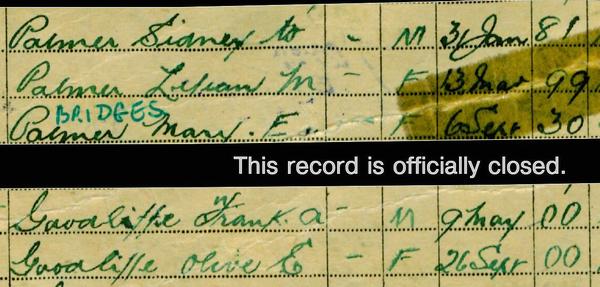 Palmer Sidney W - M 31 Jan 81
Palmer Lilian M - F 13 Mar 99
BRIDGES
Palmer Mary. E F 6 Sept 30
This record is officially closed.
Goodliffe Frank. A - M 9 May 00
Goodliffe Olive E - F 26 Sept 00